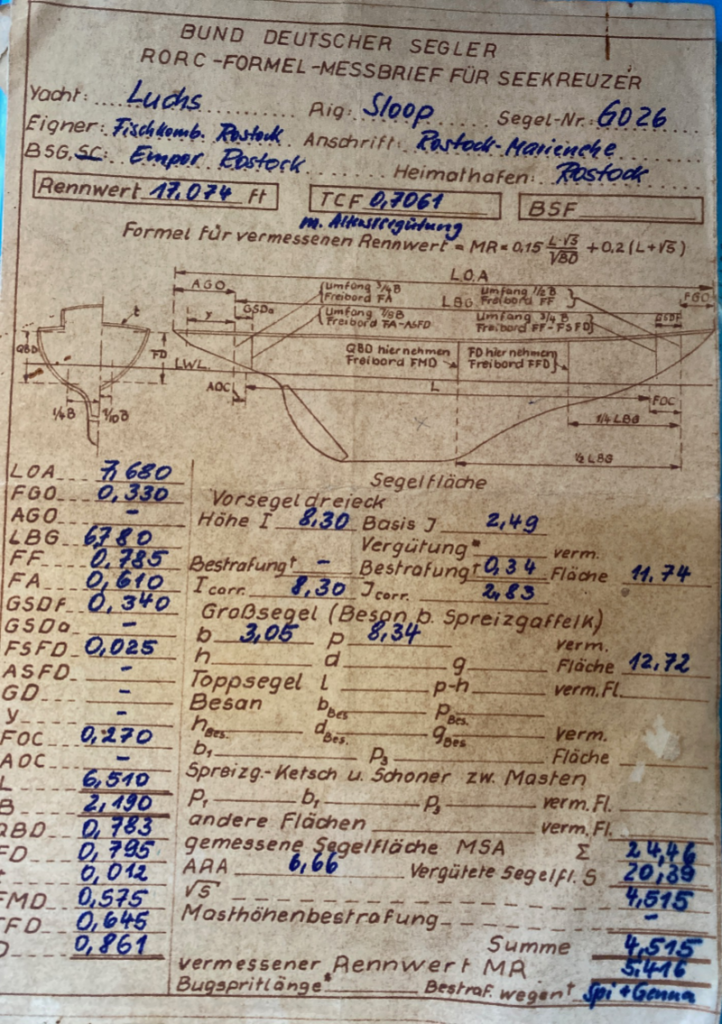 BUND DEUTSCHER SEGLER
RORC-FORMEL-MESSBRIEF FÜR SEEKREUZER
Yacht: Luchs Rig: Sloop Segel-Nr. GO 26
Eigner: Fischkomb. Rostock Anschrift: Rostock-Marienehe
BSG, SC: Empor Rostock Heimathafen: Rostock
Rennwert 17,074 ft TCF 0,7061 BSF
m. Altersvergütung
Formel für vermessenen Rennwert = MR = 0,15 L·√S / √BD + 0,2 (L+√S)
LOA
AGO Umfang 3/4 B Freibord FA LBG Umfang 1/2 B Freibord FF FGO
y GSDa Umfang 7/8 B Freibord FA-ASFD Umfang 3/4 B Freibord FF-FSFD GSDF
t
QBD FD LWL QBD hier nehmen Freibord FMD FD hier nehmen Freibord FFD
1/4 B 1/10 B AOC L FOC
1/4 LBG
1/2 LBG
LOA 7,680
FGO 0,330
AGO -
LBG 6780
FF 0,785
FA 0,610
GSDF 0,340
GSDa -
FSFD 0,025
ASFD -
GD -
y -
FOC 0,270
AOC -
L 6,510
B 2,190
QBD 0,783
FD 0,795
0,012
FMD 0,575
FFD 0,645
D 0,861
Segelfläche
Vorsegeldreieck
Höhe I 8,30 Basis J 2,49
Vergütung* verm.
Bestrafung† - Bestrafung† 0,34 Fläche 11,74
I corr. 8,30 J corr. 2,83
Großsegel (Besan b. Spreizgaffelk)
b 3,05 p 8,34 verm.
h d g Fläche 12,72
Toppsegel l p-h verm. Fl.
Besan b Bes p Bes.
h Bes. d Bes. g Bes verm.
b₁ p₃ Fläche
Spreizg.-Ketsch u. Schoner zw. Masten
p₁ b₁ p₃ verm. Fl.
andere Flächen verm. Fl.
gemessene Segelfläche MSA Σ 24,46
ARA 6,66 Vergütete Segelfl. S 20,39
√S 4,515
Masthöhenbestrafung -
Summe 4,515
vermessener Rennwert MR 5,416
Bugspritlänge* Bestraf. wegen† Spi + Genua